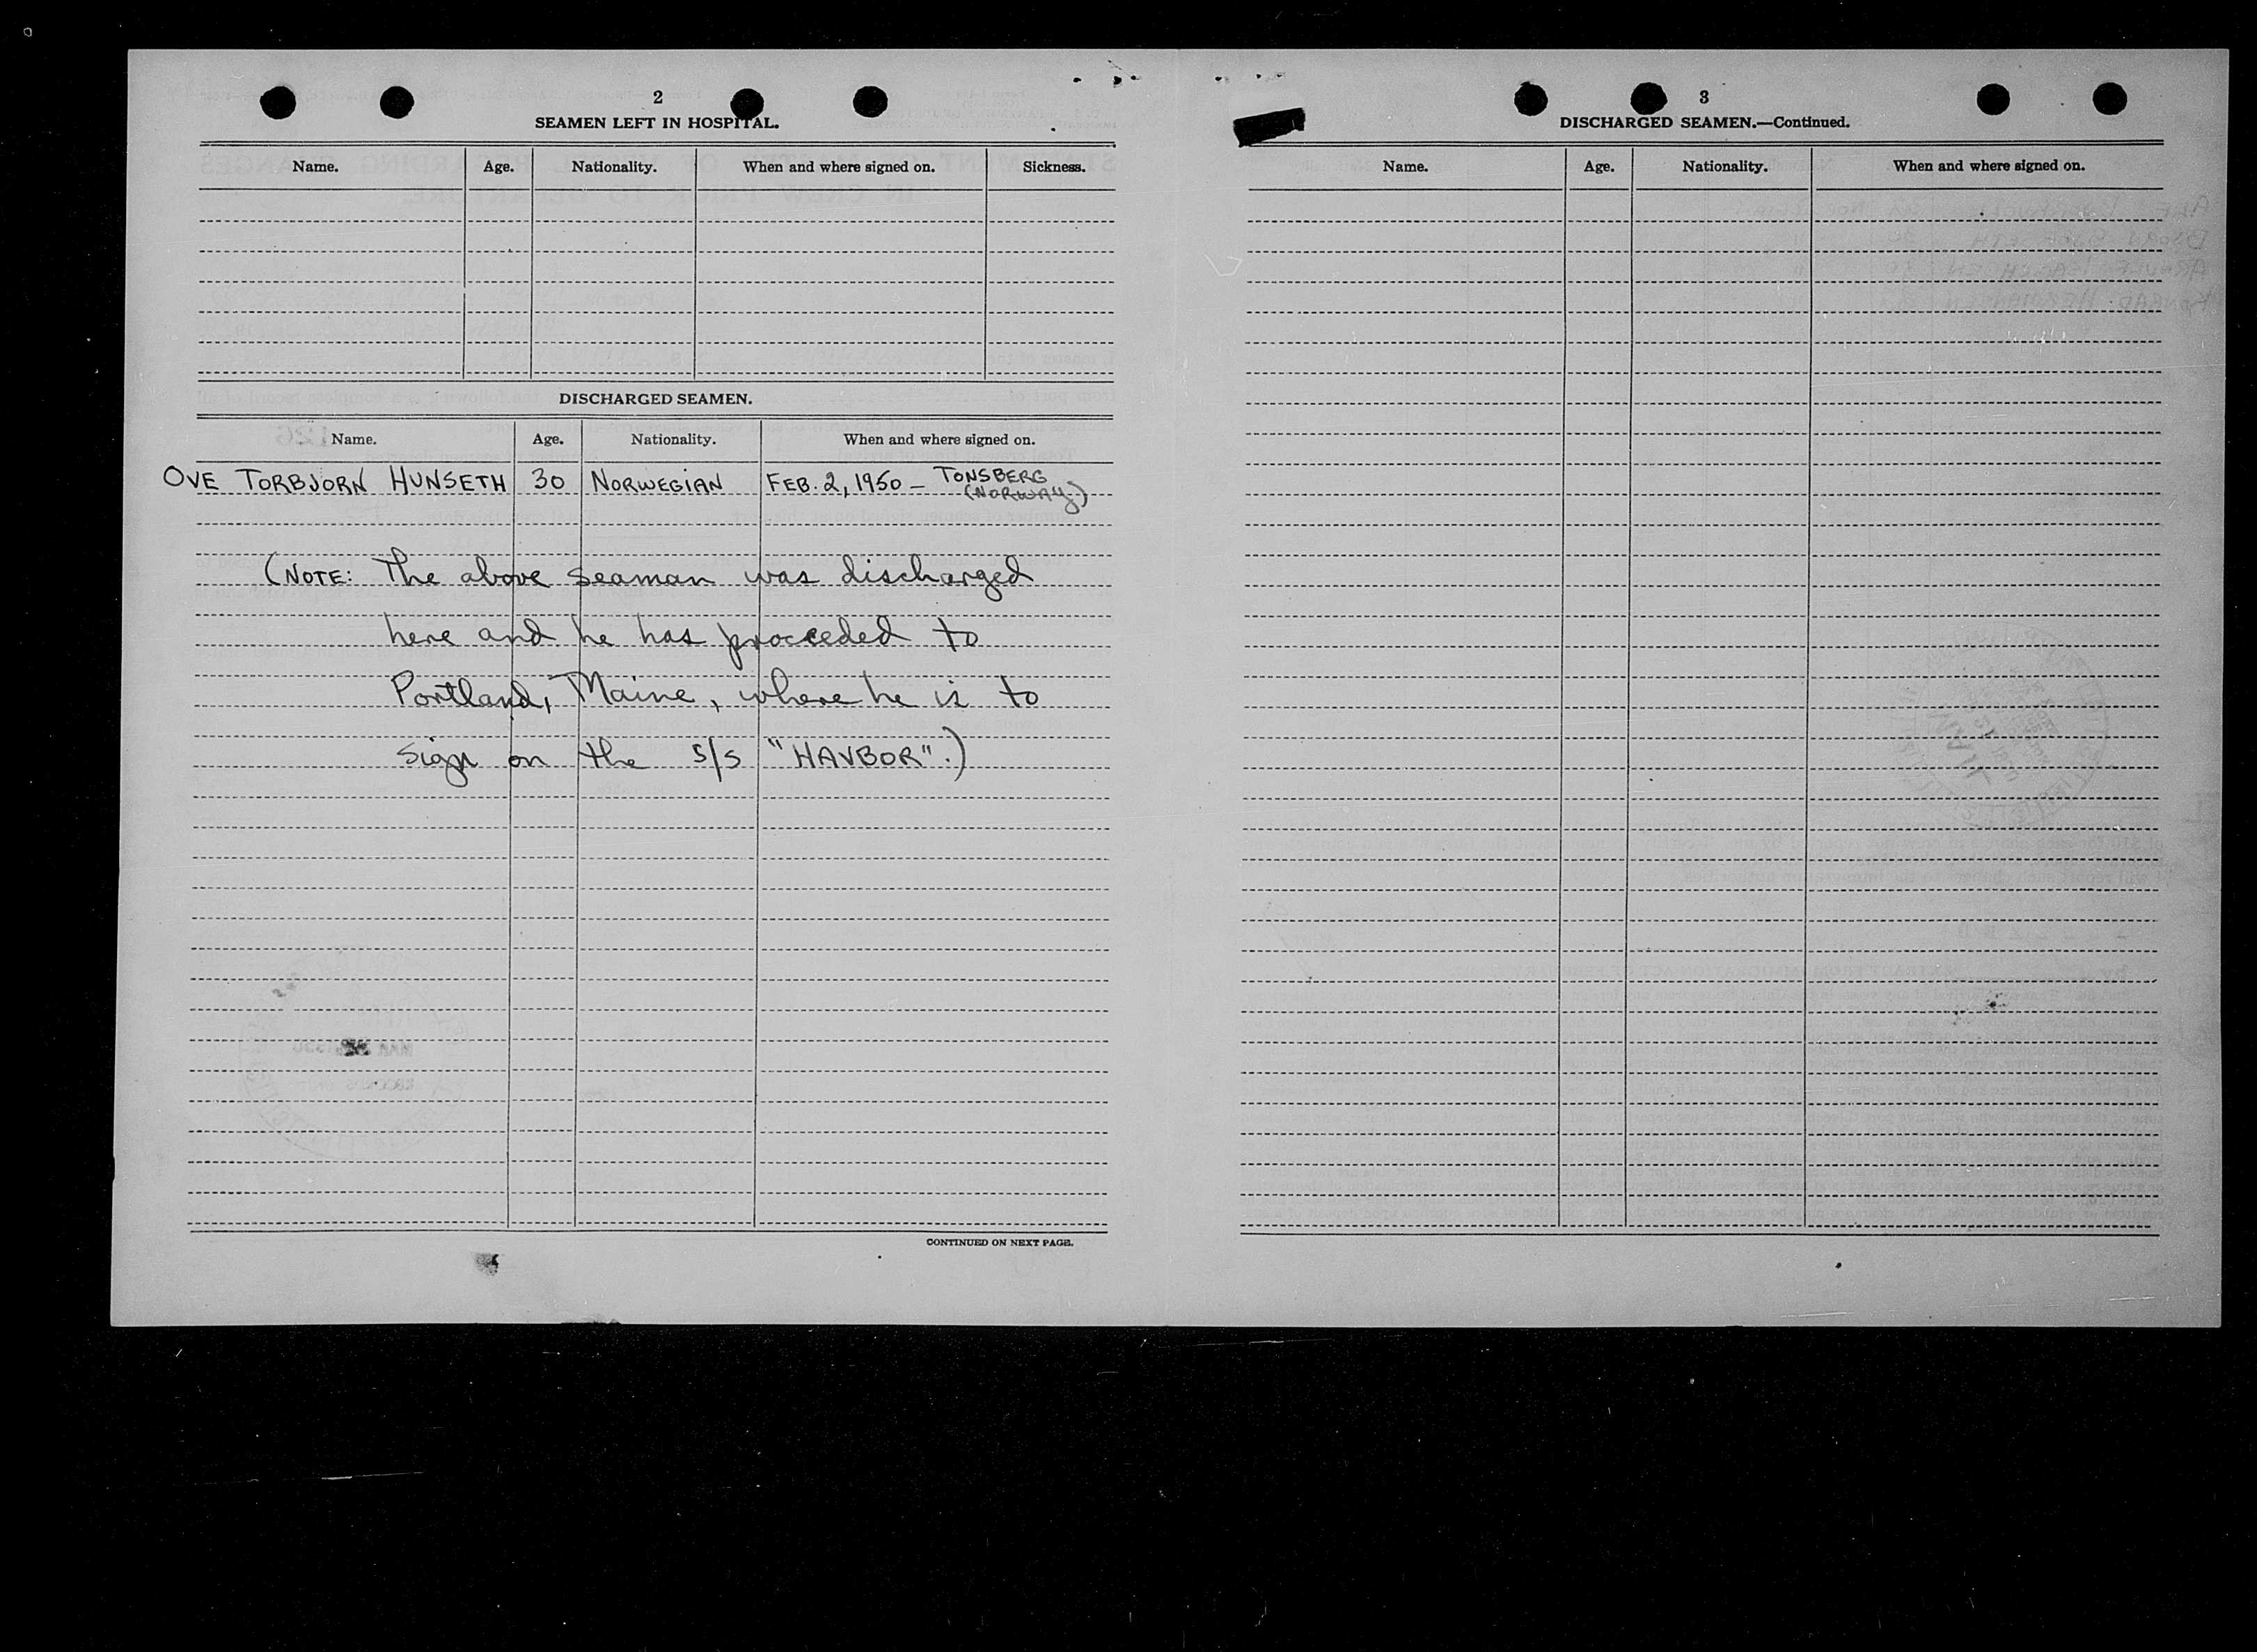 2
SEAMEN LEFT IN HOSPITAL.
Name. Age. Nationality. When and where signed on. Sickness.
DISCHARGED SEAMEN.
Name. Age. Nationality. When and where signed on.
OVE TORBJORN HUNSETH 30 NORWEGIAN FEB. 2, 1950 – TONSBERG
(NORWAY)
(NOTE: The above seaman was discharged
here and he has proceeded to
Portland, Maine, where he is to
sign on the S/S "HAVBOR".)
CONTINUED ON NEXT PAGE.
3
DISCHARGED SEAMEN.—Continued.
Name. Age. Nationality. When and where signed on.